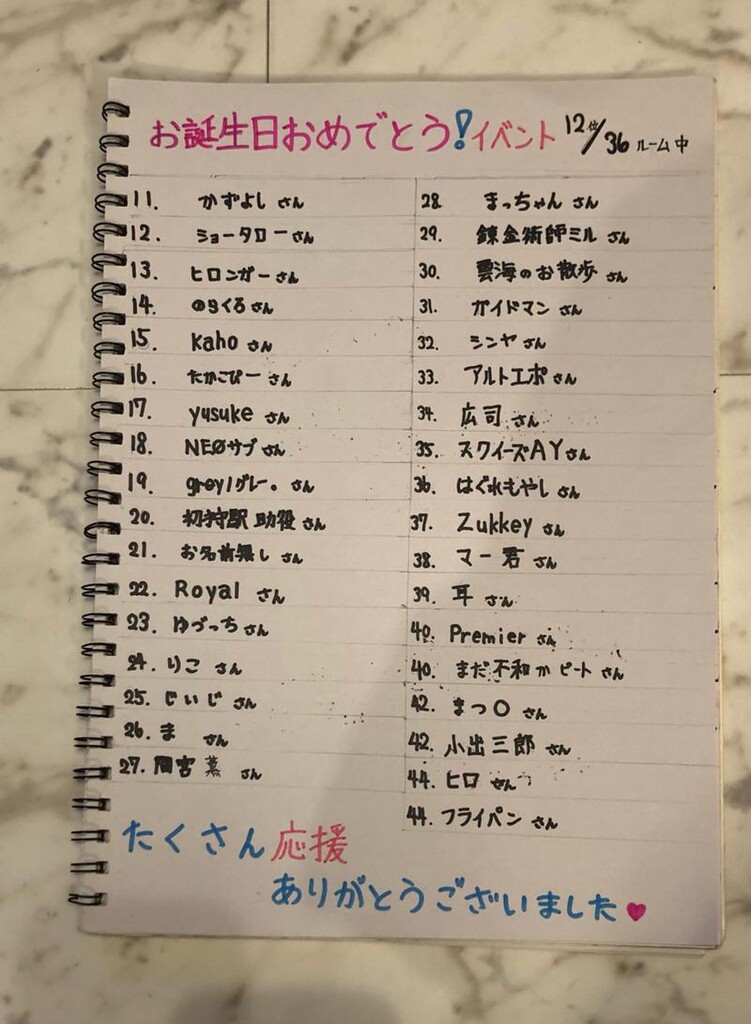 お誕生日おめでとう!イベント 12位/36ルーム中
11. かずよし さん
12. ショータロー さん
13. ヒロンガー さん
14. のらくろ さん
15. Kaho さん
16. たかこぴー さん
17. yusuke さん
18. NEØサブ さん
19. grey/グレー。 さん
20. 初狩駅 助役 さん
21. お名前無し さん
22. Royal さん
23. ゆづっち さん
24. りこ さん
25. じぃじ さん
26. ま さん
27. 間宮 薫 さん
28. まっちゃん さん
29. 錬金術師ミル さん
30. 雲海のお散歩 さん
31. ガイドマン さん
32. シンヤ さん
33. アルトエポ さん
34. 広司 さん
35. スクイーズAY さん
36. はぐれもやし さん
37. Zukkey さん
38. マー君 さん
39. 耳 さん
40. Premier さん
40. まだ不和かビート さん
42. まつ〇 さん
42. 小出三郎 さん
44. ヒロ さん
44. フライパン さん
たくさん応援
ありがとうございました♥